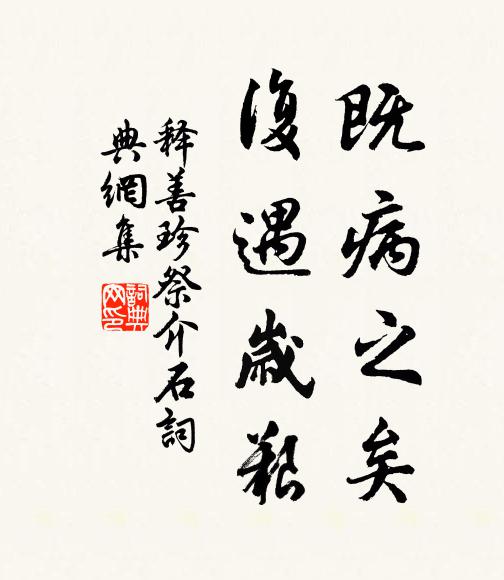 既病之矣
復遇歲艱
释善珍祭介石詞
典網集
詞典网印